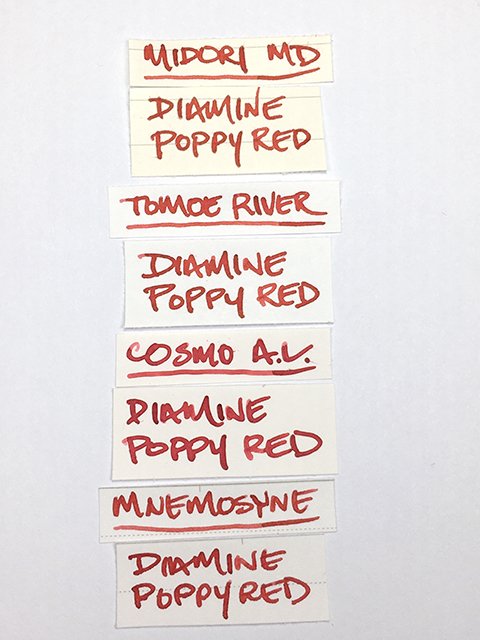 MIDORI MD
DIAMINE
POPPY RED
TOMOE RIVER
DIAMINE
POPPY RED
COSMO A.L.
DIAMINE
POPPY RED
MNEMOSYNE
DIAMINE
POPPY RED